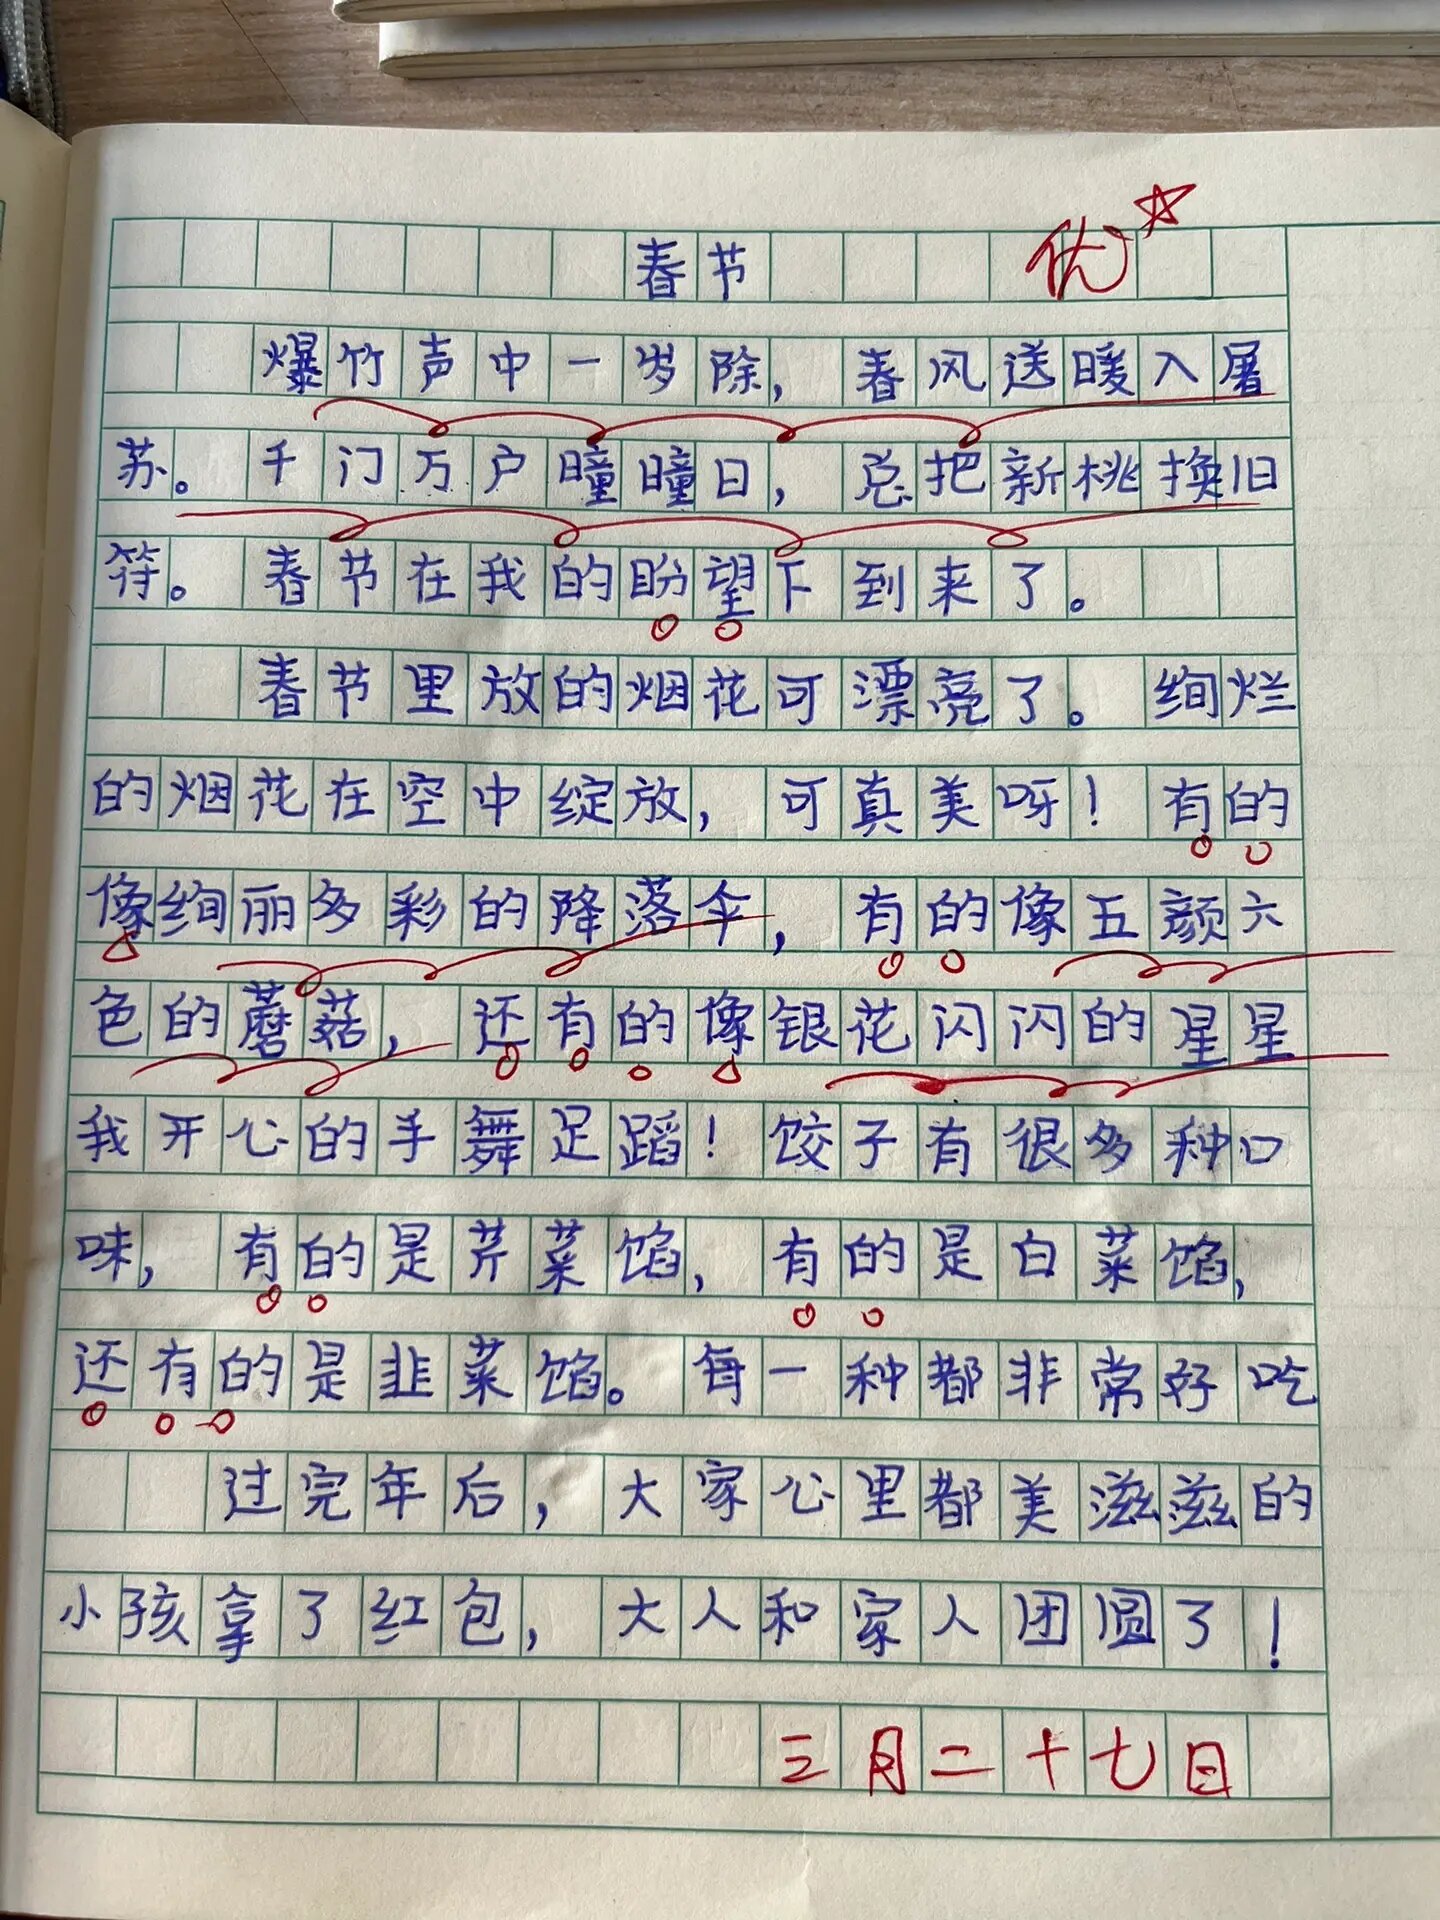 春节 优
爆竹声中一岁除，春风送暖入屠
苏。千门万户曈曈日，总把新桃换旧
符。春节在我的盼望下到来了。
春节里放的烟花可漂亮了。绚烂
的烟花在空中绽放，可真美呀！有的
像绚丽多彩的降落伞，有的像五颜六
色的蘑菇，还有的像银花闪闪的星星
我开心的手舞足蹈！饺子有很多种口
味，有的是芹菜馅，有的是白菜馅，
还有的是韭菜馅。每一种都非常好吃
过完年后，大家心里都美滋滋的
小孩拿了红包，大人和家人团圆了！
三月二十七日